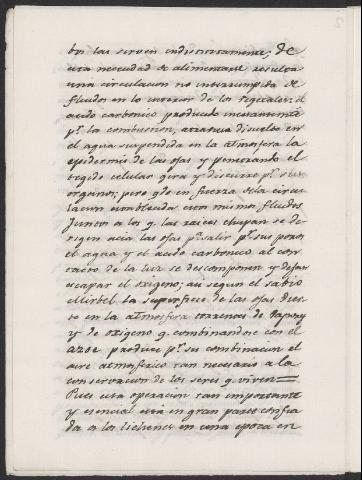 las sirven indistintamente; de
esta necesidad de alimentarse resulta
una circulacion no interrumpida de
fluidos en lo interior de los vegetales: el
acido carbonico producido incesantemente
pr. la combustion, atraviesa disuelto en
el agua suspendida en la atmosfera la
epidermis de las ojas y penetrando el
tegido celular gira y discurre pr. sus
organos; pero qdo en fuerza de la circu
lacion establecida estos mismos fluidos
juntos a los q. las raices chupan se di-
rigen acia las ojas pa. salir pr. sus poros
el agua y el acido carbonico al con
tacto de la luz se descomponen y dejan
escapar el oxigeno; asi segun el sabio
Mirbel la superficie de las ojas vier-
te en la atmosfera torrentes de vapores
y de oxigeno q. combinandose con el
azoe produce pr. su combinacion el
aire atmosferico tan necesario a la
conservacion de los seres q. viven=
Pues esta operacion tan importante
y esencial está en gran parte confia
da a los lichenes en una epoca en